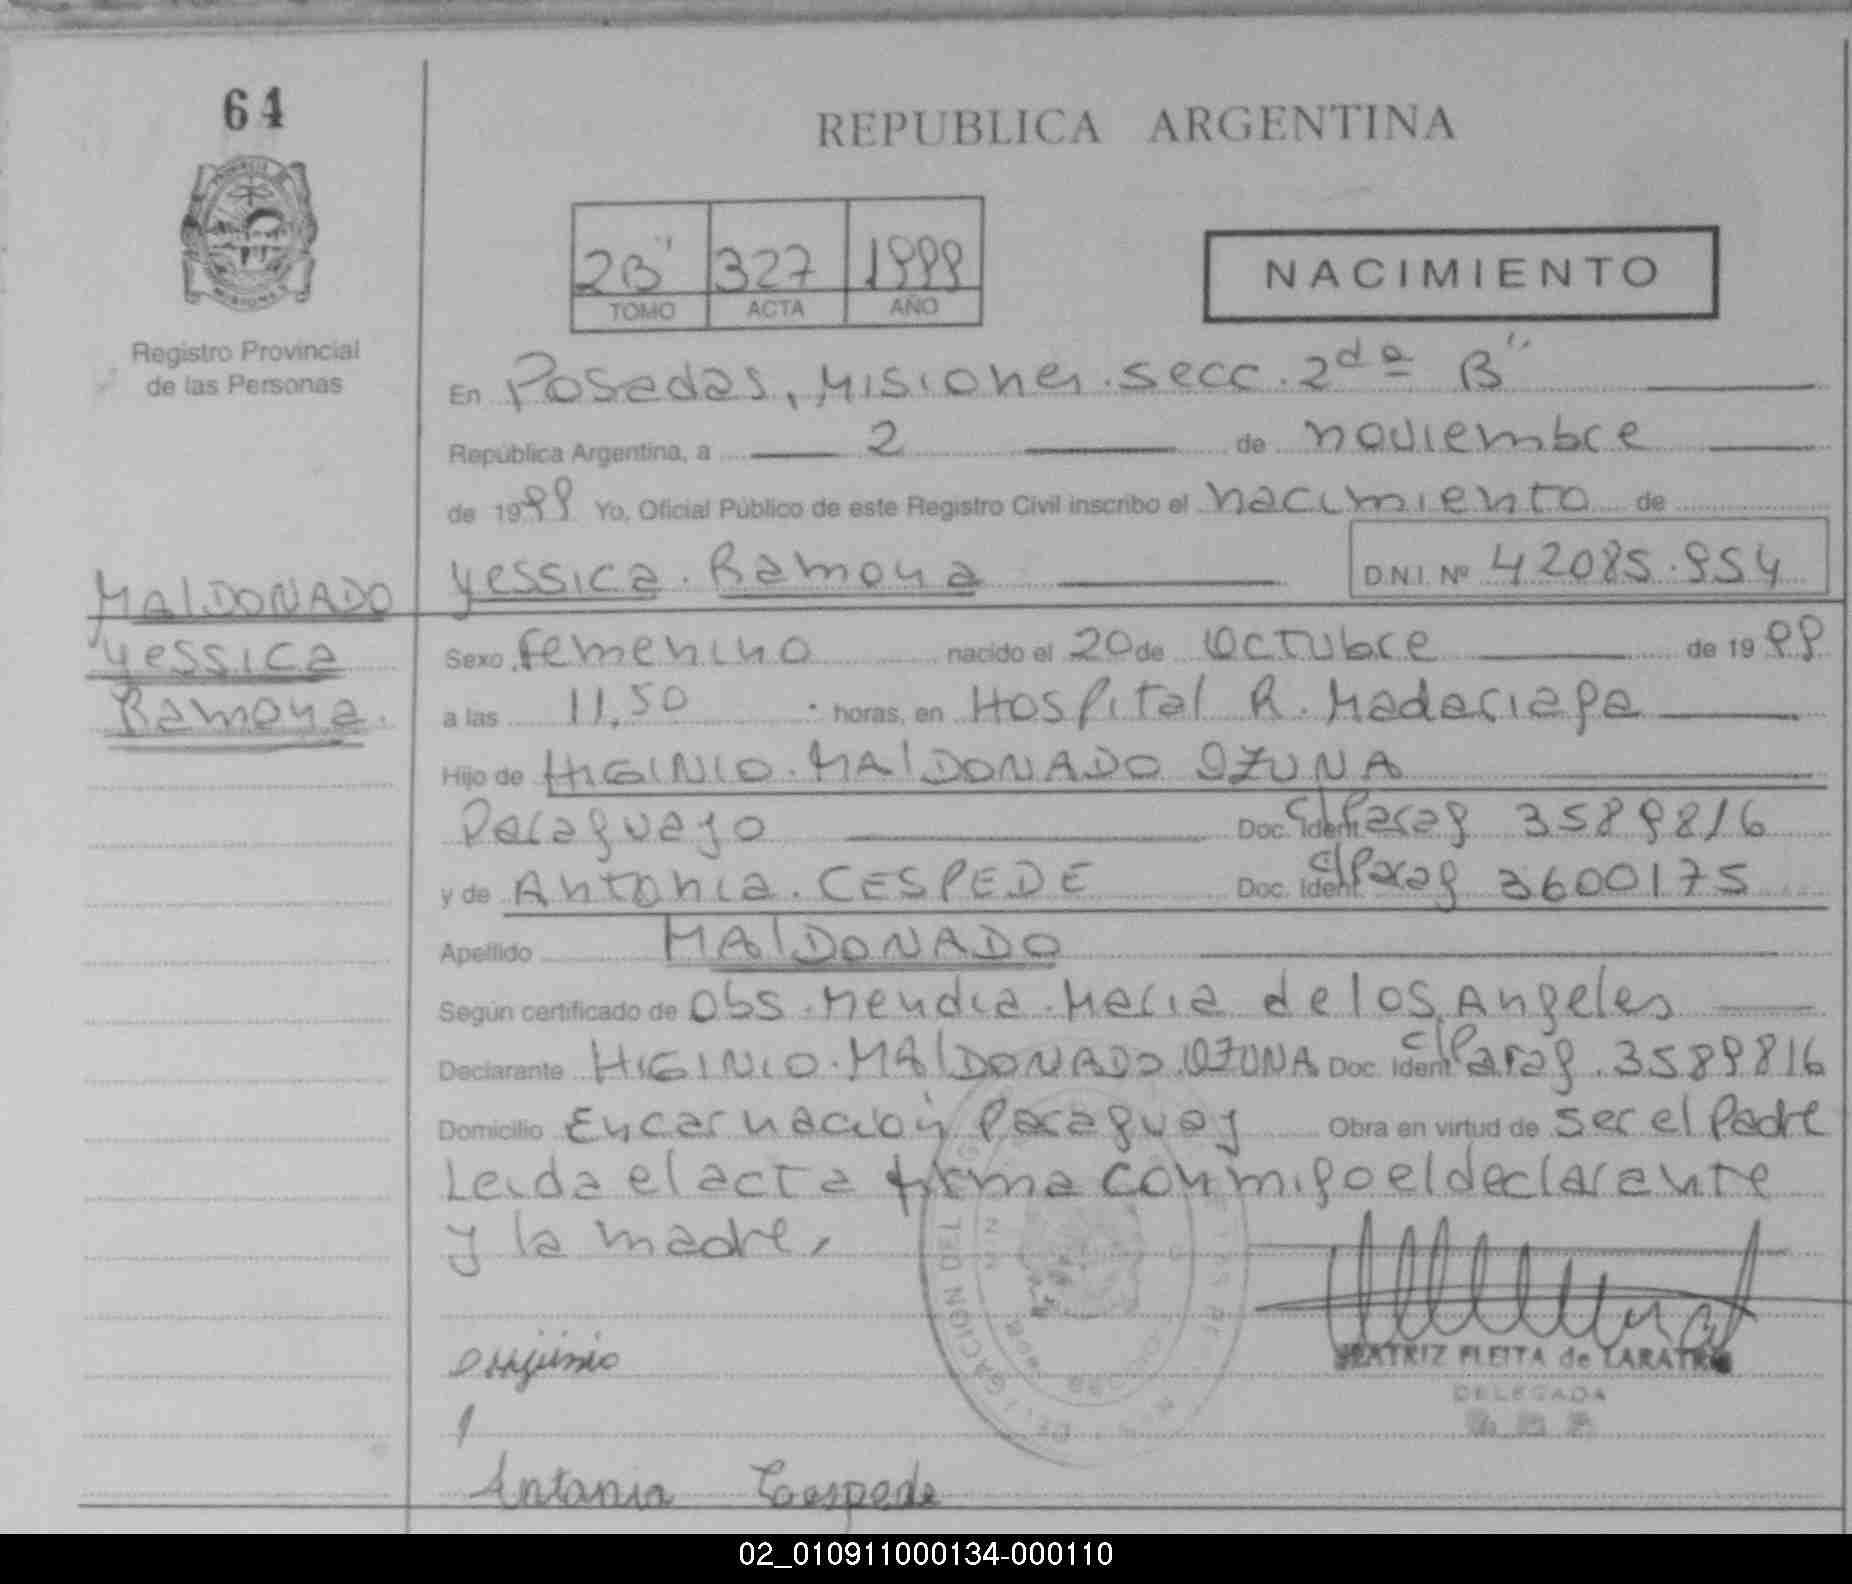 64
REPUBLICA ARGENTINA
2B" 327 1999
TOMO ACTA AÑO
NACIMIENTO
Registro Provincial
de las Personas
En Posadas, Misiones. secc. 2da B"
República Argentina, a 2 de noviembre
de 1999 Yo, Oficial Público de este Registro Civil inscribo el nacimiento de
Yessica. Ramona D.N.I. Nº 42085.954
MAlDONADO
Yessica
Ramona.
Sexo femenino nacido el 20 de Octubre de 1999
a las 11,50 horas, en Hospital R. Madariaga
Hijo de HIGINIO. MAlDONADO OZUNA
Paraguayo Doc. Ident. C/Parag 3589816
y de Antonia. CESPEDE Doc. Ident. C/Parag 3600175
Apellido MAlDONADO
Según certificado de Obs. Mendia. Maria de los Angeles
Declarante HIGINIO. MAlDONADO. OZUNA Doc. Ident C/Parag. 3589816
Domicilio Encarnación Paraguay Obra en virtud de ser el Padre
Leida el acta firma conmigo el declarante
y la madre,
BEATRIZ FLEITA de
DELEGADA
Antania Cespede
02_010911000134-000110